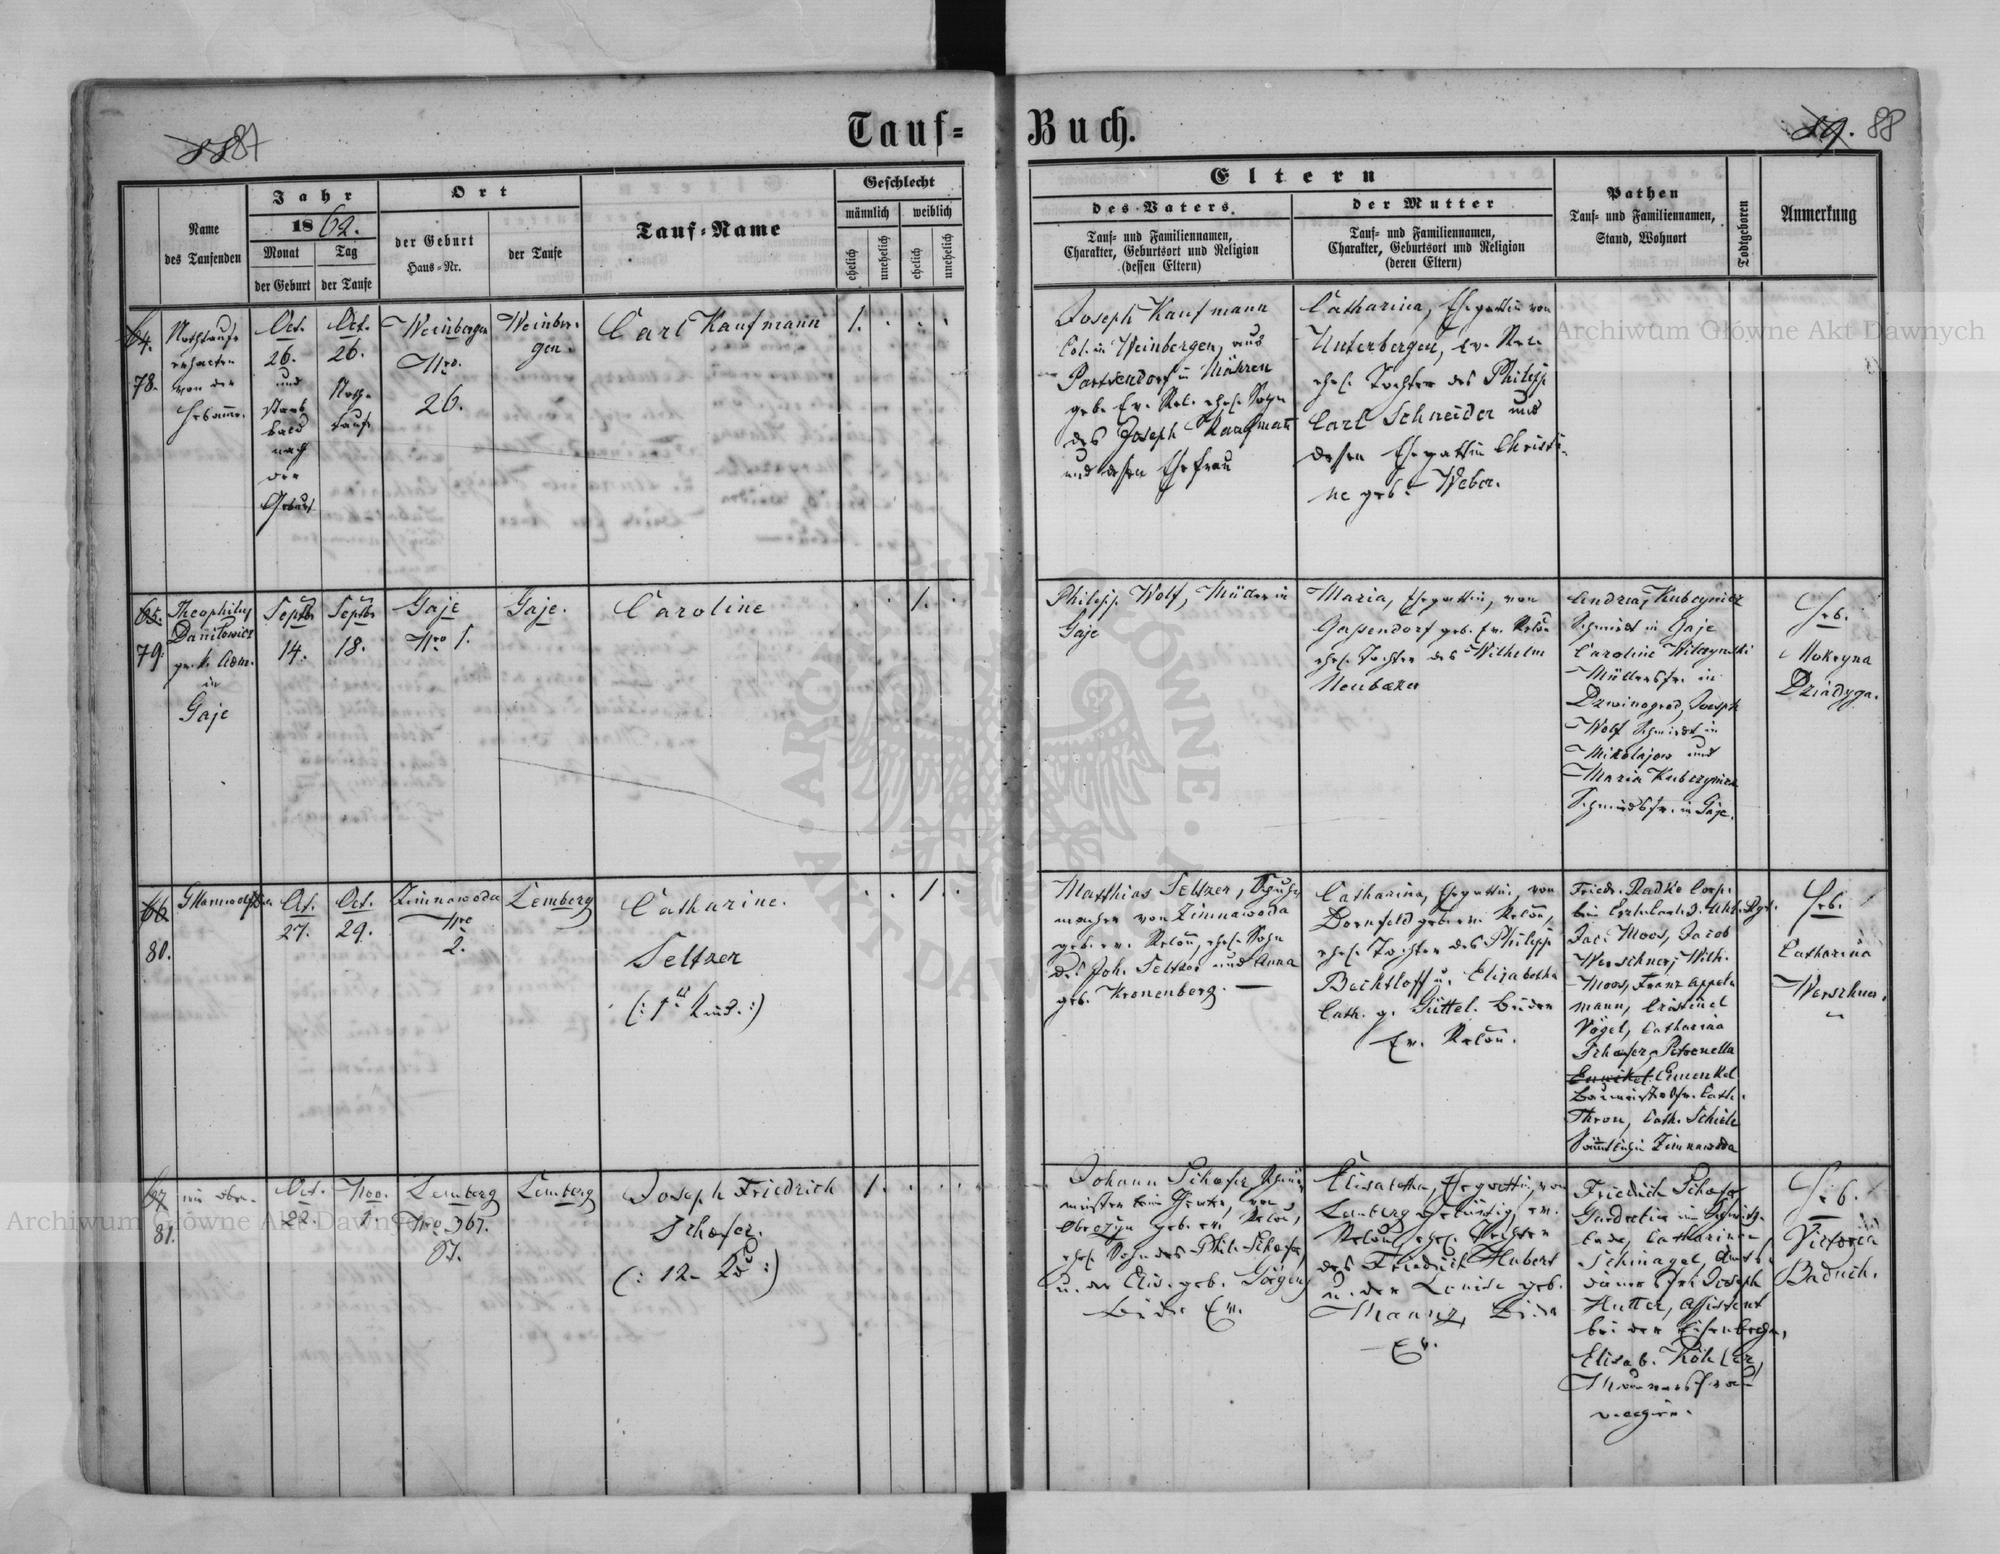 Tauf= Buch.
87
88
Name
des Taufenden
Jahr
1862.
Monat
der Geburt
Tag
der Taufe
Ort
der Geburt
Haus=Nr.
der Taufe
Tauf=Name
Geschlecht
männlich
weiblich
ehelich
unehelich
ehelich
unehelich
Eltern
des Vaters
Tauf= und Familiennamen,
Charakter, Geburtsort und Religion
(dessen Eltern)
der Mutter
Tauf= und Familiennamen,
Charakter, Geburtsort und Religion
(deren Eltern)
Pathen
Tauf= und Familiennamen,
Stand, Wohnort
Todtgeboren
Anmerkung
64.
78.
Nothtaufe
erhalten
von der
Hebamme.
Oct.
26.
und
starb
bald
nach
der
Geburt
Oct.
26.
Noth-
taufe
Weinbergen
Nro.
26.
Weinber-
gen.
Carl Kaufmann
1.
Joseph Kaufmann
Col. in Weinbergen, aus
Partsendorf in Mähren
geb. Ev. Rel. ehel. Sohn
des Joseph Kaufmann
und dessen Ehefrau
Catharina, Ehegattin von
Unterbergen, Ev. Rel.
ehel. Tochter des Philipp
Carl Schneider und
dessen Ehegattin Christi-
ne geb. Weber.
65.
79.
Theophilus
Danilowicz
gr. k. Adm.
in
Gaje
Septbr
14.
Septbr
18.
Gaje
Nro 1.
Gaje.
Caroline
1.
Philipp Wolf, Müller in
Gaje
Maria, Ehegattin, von
geb. Ev. Relon
ehel. Tochter des Wilhelm
Neubauer
Schmidt in Gaje
Caroline Wilczynski
Müllersfr. in
Dzwinogrod, Joseph
Wolf Schmidt in
Mikolajow und
Maria
Schmidsfr. in Gaje.
Heb.
Mokryna
Dziadyga.
66.
80.
Oct.
27.
Oct.
29.
Zimnawoda
Nro
2.
Lemberg
Catharine.
Seltzer
(: 1tes Kind. :)
1.
Matthias Seltzer, Schuh-
macher von Zimnawoda
geb. ev. Relon, ehel. Sohn
des Joh. Seltzer und Anna
geb. Kronenberg.
Catharina, Ehegattin, von
Dornfeld geb. ev. Relon,
ehel. Tochter des Philipp
Bechtloff u. Elisabetha
Cath. g. Güttel. Beiden
Ev. Relon.
Friedr. Radke Corp.
Jac. Moos, Jacob
Werschner, Wilh.
Moos, Franz Appel-
mann,
Vogel, Catharina
Schaefer, Petronella
Emenkel
Cath.
Thron, Cath. Schiele
Sämtlich in Zimnawoda
Heb.
Catharina
Werschner.
67.
81.
wie oben.
Oct.
22.
Nov.
1
Lemberg
Nro 367.
Lemberg
Joseph Friedrich
Schaefer.
1.
Johann Schaefer
geb. ev. Relon,
ehel. Sohn des Phil. Schaefer,
u. der Elis. geb. Görgen
beide Ev.
Elisabetha, Ehegattin, von
Lemberg gebürtig, ev.
Relon, ehel. Tochter
des Friedrich Hubert
u. der Louise geb.
Manz, Beide
Ev.
Friedrich Schaefer
Catharina
Schinagel,
Joseph
Hutter, Assistent
bei der Eisenbahn,
Elisab. Köhler,
Heb.
Victoria
Baduch.
Archiwum Główne Akt Dawnych
Archiwum Główne Akt Dawnych
ARCHIWUM GŁÓWNE AKT DAWNYCH